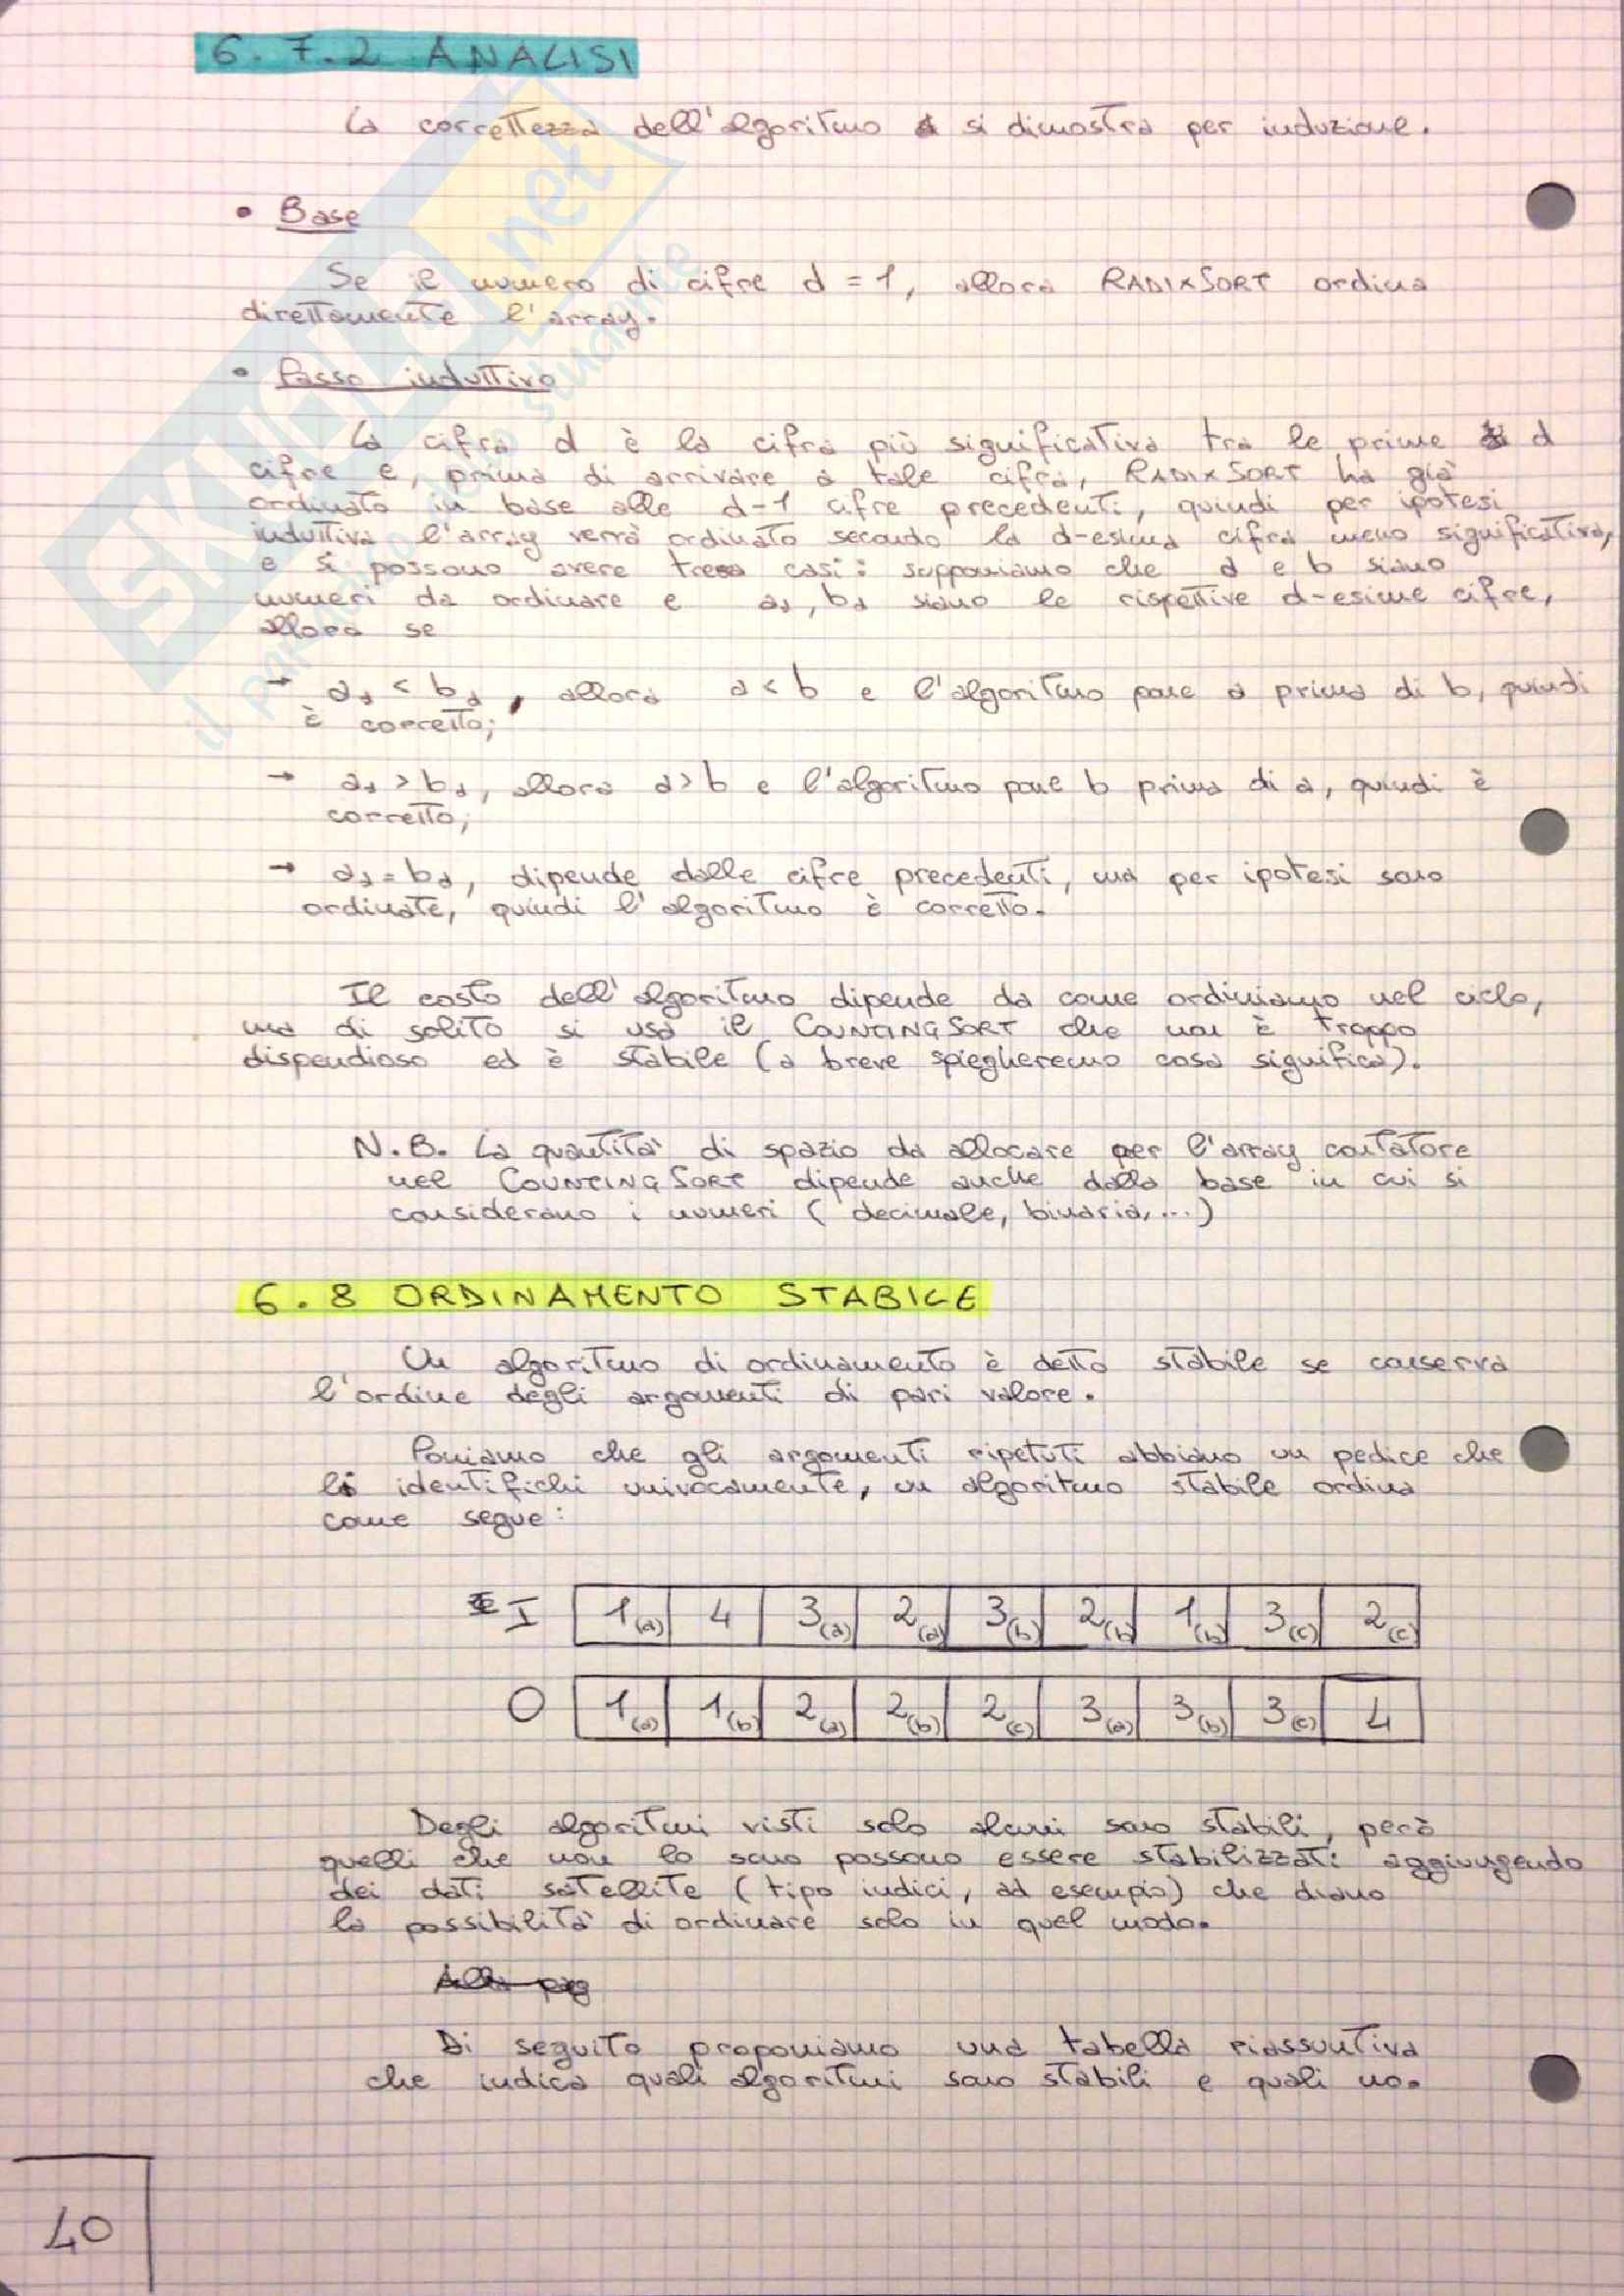 6.7.2 ANALISI
La correttezza dell'algoritmo si dimostra per induzione.
• Base
Se il numero di cifre d = 1, allora RADIXSORT ordina
direttamente l'array.
• Passo induttivo
La cifra d è la cifra più significativa tra le prime d
cifre e, prima di arrivare a tale cifra, RADIXSORT ha già
ordinato in base alle d-1 cifre precedenti, quindi per ipotesi
induttiva l'array verrà ordinato secondo la d-esima cifra meno significativa,
e si possono avere tre casi: supponiamo che a e b siano
numeri da ordinare e a_d, b_d siano le rispettive d-esime cifre,
allora se
→ a_d < b_d, allora a < b e l'algoritmo pone a prima di b, quindi
è corretto;
→ a_d > b_d, allora a > b e l'algoritmo pone b prima di a, quindi è
corretto;
→ a_d = b_d, dipende dalle cifre precedenti, ma per ipotesi sono
ordinate, quindi l'algoritmo è corretto.
Il costo dell'algoritmo dipende da come ordiniamo nel ciclo,
ma di solito si usa il COUNTINGSORT che non è troppo
dispendioso ed è stabile (a breve spiegheremo cosa significa).
N.B. La quantità di spazio da allocare per l'array contatore
nel COUNTINGSORT dipende anche dalla base in cui si
considerano i numeri (decimale, binaria, ...)
6.8 ORDINAMENTO STABILE
Un algoritmo di ordinamento è detto stabile se conserva
l'ordine degli argomenti di pari valore.
Poniamo che gli argomenti ripetuti abbiano un pedice che
li identifichi univocamente, un algoritmo stabile ordina
come segue:
I 1(a) 4 3(a) 2(a) 3(b) 2(b) 1(b) 3(c) 2(c)
O 1(a) 1(b) 2(a) 2(b) 2(c) 3(a) 3(b) 3(c) 4
Degli algoritmi visti solo alcuni sono stabili, però
quelli che non lo sono possono essere stabilizzati aggiungendo
dei dati satellite (tipo indici, ad esempio) che diano
la possibilità di ordinare solo in quel modo.
Di seguito proponiamo una tabella riassuntiva
che indica quali algoritmi sono stabili e quali no.
40
SKUOLA.net